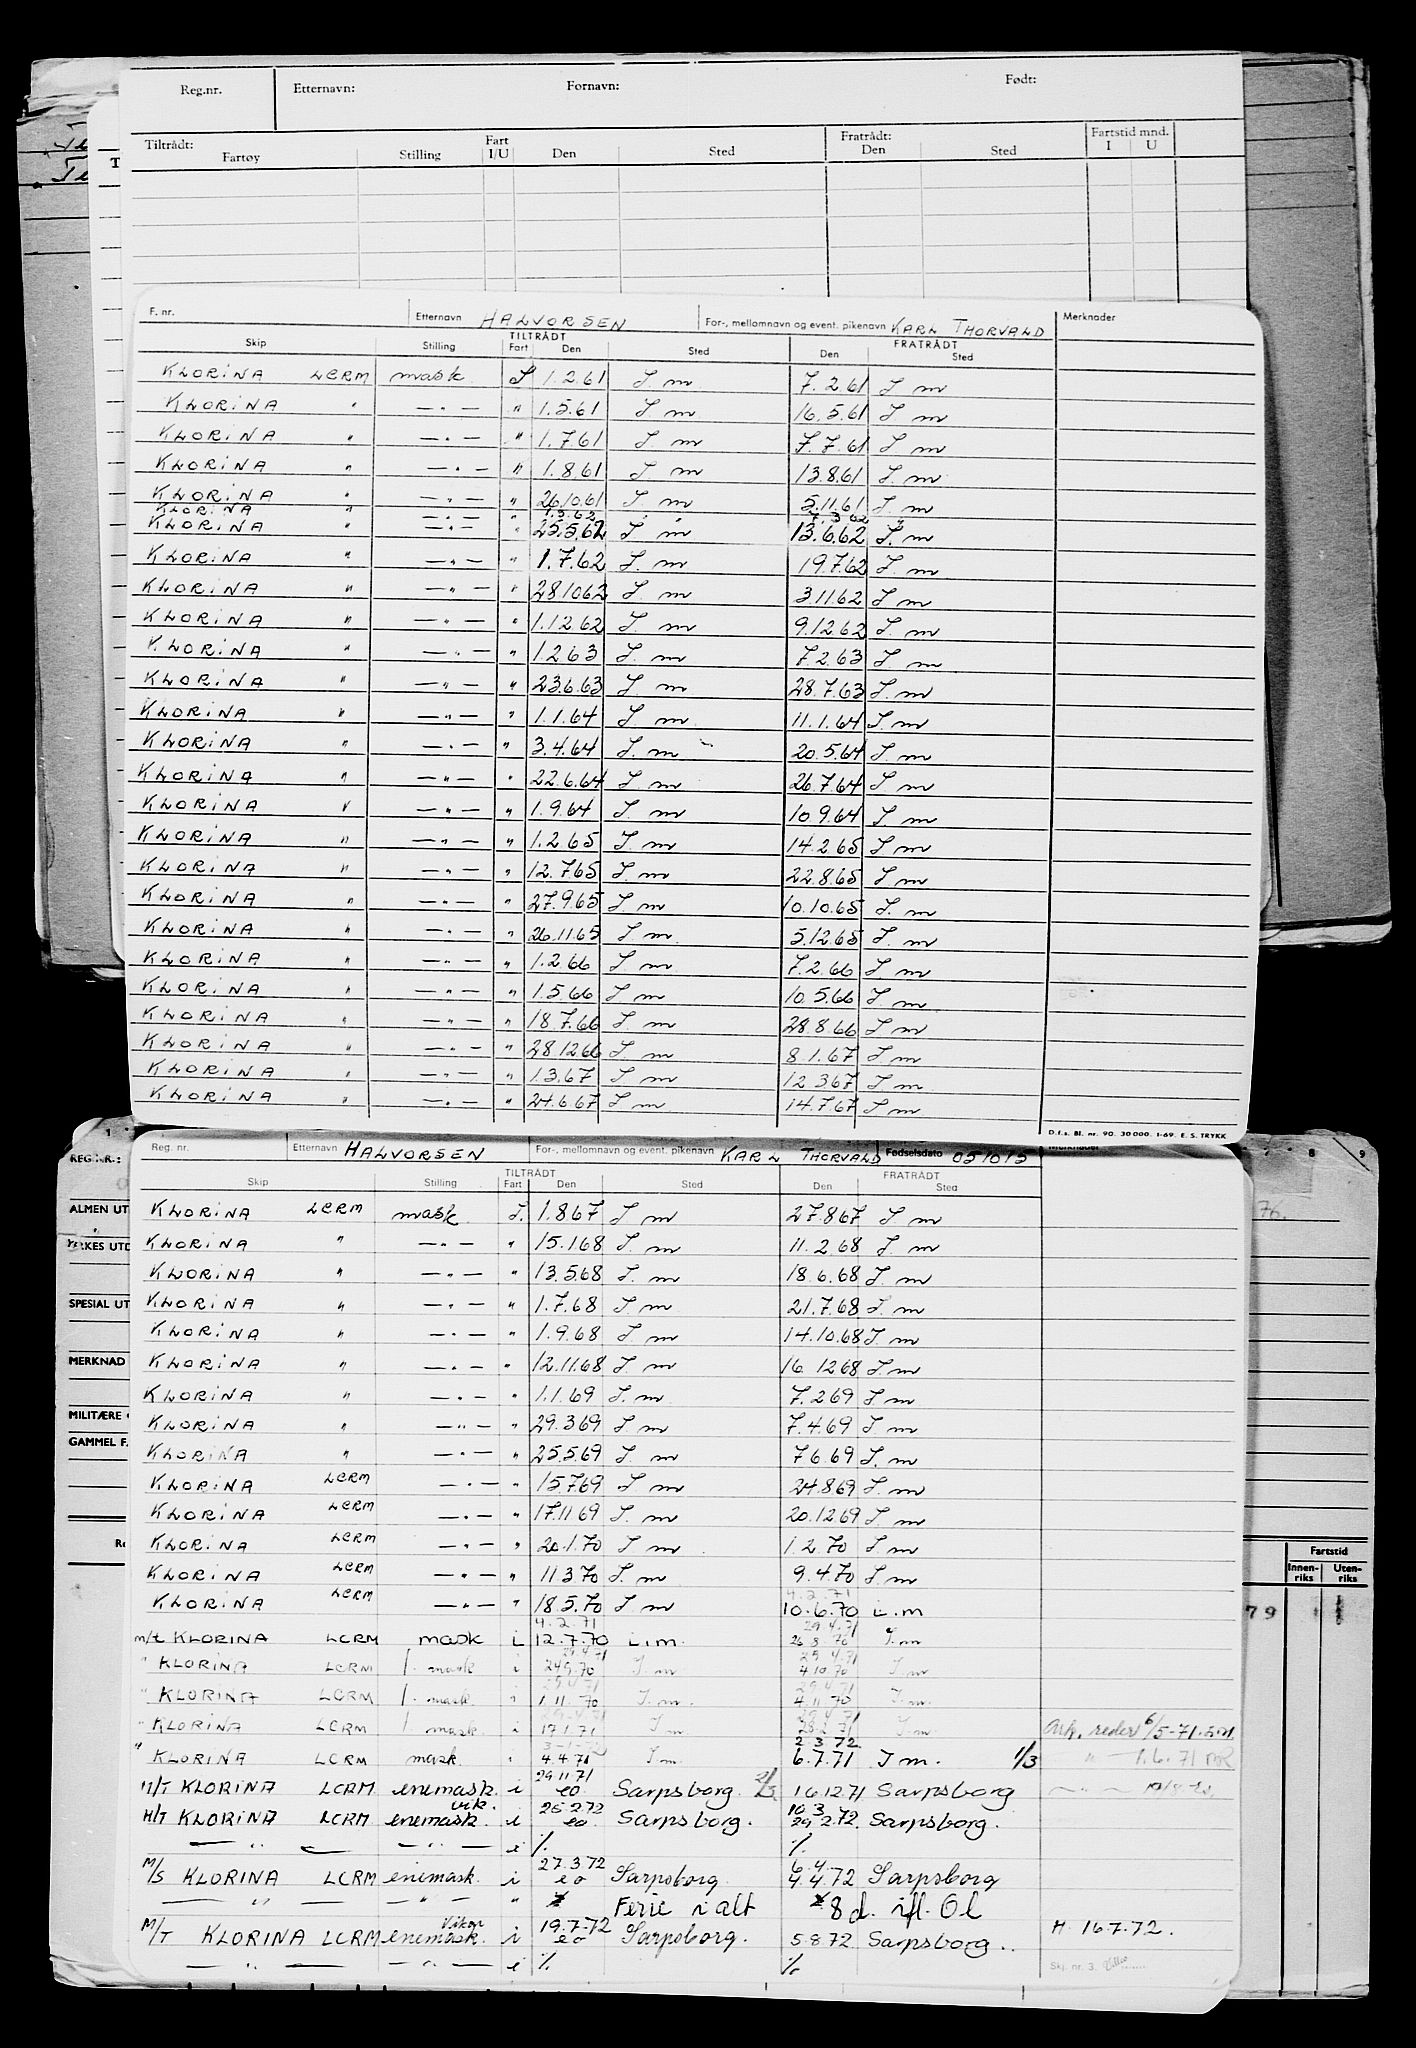 Reg.nr. Etternavn: Fornavn: Født:
Tiltrådt: Fart Fratrådt: Fartstid mnd.
Fartøy Stilling I/U Den Sted Den Sted I U
F. nr. Etternavn HALVORSEN For-, mellomnavn og event. pikenavn KARL THORVALD Merknader
TILTRÅDT FRATRÅDT
Skip Stilling Fart Den Sted Den Sted
KLORINA LCRM mask I 1.2.61 I m 7.2.61 I m
KLORINA " — " — " 1.5.61 I. m 16.5.61 I m
KLORINA " — " — " 1.7.61 I. m 7.7.61 I m
KLORINA " — " — " 1.8.61 I m 13.8.61 I. m
KLORINA " — " — " 26.10.61 I m 5.11.61 I. m
KLORINA " — " — " 1.3.62 " " 7.3.62 "
KLORINA " — " — " 25.5.62 I m 13.6.62 I. m
KLORINA " — " — " 1.7.62 I. m 19.7.62 I. m
KLORINA " — " — " 28.10.62 I. m 3.11.62 I. m
KLORINA " — " — " 1.12.62 I. m 9.12.62 I. m
KLORINA " — " — " 1.2.63 I. m 7.2.63 I. m
KLORINA " — " — " 23.6.63 I. m 28.7.63 I. m
KLORINA " — " — " 1.1.64 I. m 11.1.64 I. m
KLORINA " — " — " 3.4.64 I. m 20.5.64 I. m
KLORINA " — " — " 22.6.64 I. m 26.7.64 I. m
KLORINA " — " — " 1.9.64 I. m 10.9.64 I m
KLORINA " — " — " 1.2.65 I. m 14.2.65 I. m
KLORINA " — " — " 12.7.65 I. m 22.8.65 I. m
KLORINA " — " — " 27.9.65 I. m 10.10.65 I. m
KLORINA " — " — " 26.11.65 I. m 5.12.65 I. m
KLORINA " — " — " 1.2.66 I. m 7.2.66 I. m
KLORINA " — " — " 1.5.66 I. m 10.5.66 I. m
KLORINA " — " — " 18.7.66 I. m 28.8.66 I. m
KLORINA " — " — " 28.12.66 I. m 8.1.67 I. m
KLORINA " — " — " 1.3.67 I. m 12.3.67 I. m
KLORINA " — " — " 24.6.67 I. m 14.7.67 I. m
D.f.s. Bl. nr. 90. 30 000. 1-69. E. S. TRYKK
Reg. nr. Etternavn HALVORSEN For-, mellomnavn og event. pikenavn KARL THORVALD Fødselsdato 051015 Merknader
REG.NR.:
TILTRÅDT FRATRÅDT
Skip Stilling Fart Den Sted Den Sted
ALMEN UT
YRKES UTD
SPESIAL UT
MERKNAD
MILITÆRE
GAMMEL F.
KLORINA LCRM mask I. 1.8.67 I m 27.8.67 I m
KLORINA " — " — " 15.1.68 I. m 11.2.68 I. m
KLORINA " — " — " 13.5.68 I. m 18.6.68 I. m
KLORINA " — " — " 1.7.68 I. m 21.7.68 I. m
KLORINA " — " — " 1.9.68 I. m 14.10.68 I. m
KLORINA " — " — " 12.11.68 I. m 16.12.68 I. m
KLORINA " — " — " 1.1.69 I. m 7.2.69 I. m
KLORINA " — " — " 29.3.69 I. m 7.4.69 I. m
KLORINA " — " — " 25.5.69 I. m 7.6.69 I. m
KLORINA LCRM — " — " 15.7.69 I. m 24.8.69 I. m
KLORINA LCRM — " — " 17.11.69 I. m 20.12.69 I. m
KLORINA LCRM — " — " 20.1.70 I m 1.2.70 I. m
KLORINA LCRM — " — " 11.3.70 I. m 9.4.70 I. m
KLORINA LCRM — " — " 18.5.70 I m 10.6.70 i.m
4.2.71 4.2.71
m/t KLORINA LCRM mask i 12.7.70 i.m. 26.8.70 I.m
29.4.71 29.4.71
" KLORINA LCRM 1. mask i 24.9.70 I m 4.10.70 I m
29.4.71 29.4.71
" KLORINA LCRM 1. mask " 1.11.70 I.m. 4.11.70 I.m.
29.4.71 29.4.71
" KLORINA LCRM 1. mask i 17.1.71 I m 28.2.71 I.m. 6/5-71
2.3.72
" KLORINA LCRM mask. " 4.4.71 I m. 6.7.71 I m. 1/3
29.11.71
M/T KLORINA LCRM enemask. i eo Sarpsborg 2/3 16.12.71 Sarpsborg
vik. 25.2.72 10.3
M/T KLORINA LCRM enemask. i eo Sarpsborg. 29.2.72. Sarpsborg.
— " — — " — i % %
27.3.72 6.4.
M/S KLORINA LCRM enemask. i eo Sarpsborg 4.4.72 Sarpsborg
— " — — " — " Ferie i alt 8 d. ifl. Ol
Vikar 19.7.72
M/T KLORINA LCRM enemask. i eo Sarpsborg. 5.8.72 Sarpsborg.. H. 16.7.72.
— " — — " — i % % Skj. nr. 3.
Fartstid
Innenriks Utenriks
79